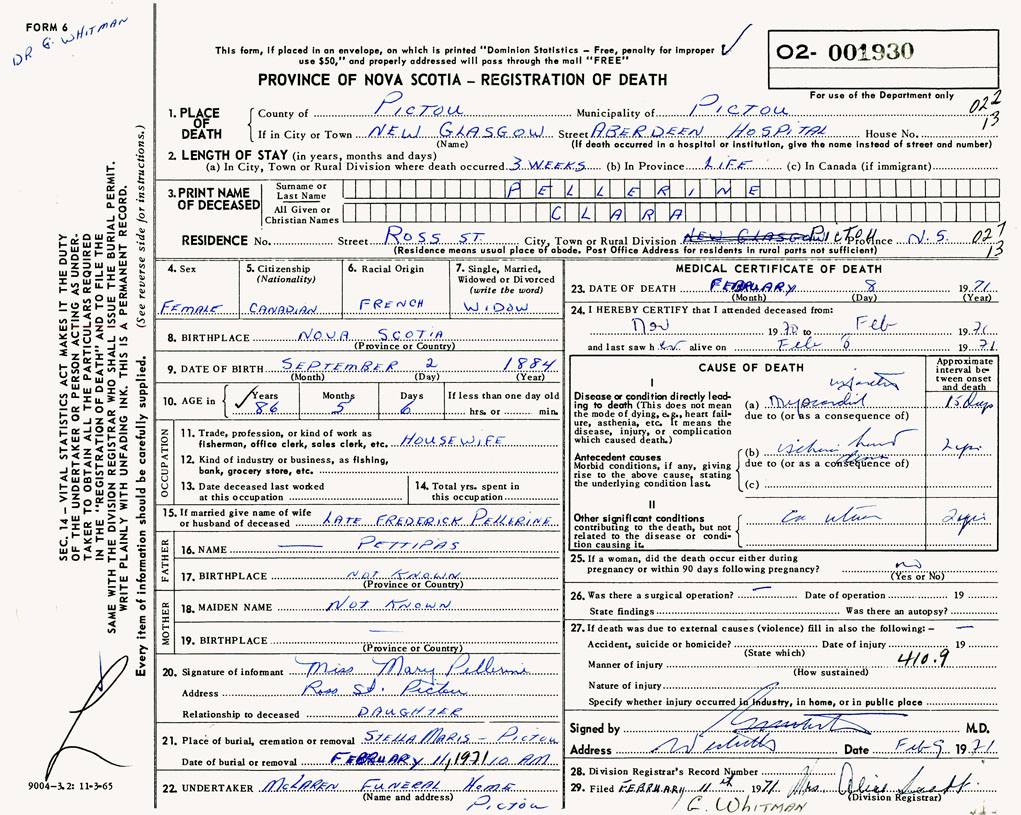 FORM 6
DR G. WHITMAN
This form, if placed in an envelope, on which is printed "Dominion Statistics – Free, penalty for improper
use $50," and properly addressed will pass through the mail "FREE"
PROVINCE OF NOVA SCOTIA – REGISTRATION OF DEATH
O2- 001930
For use of the Department only
022
13
1. PLACE OF DEATH
County of PICTOU Municipality of PICTOU
If in City or Town NEW GLASGOW Street ABERDEEN HOSPITAL House No.
(Name) (If death occurred in a hospital or institution, give the name instead of street and number)
2. LENGTH OF STAY (in years, months and days)
(a) In City, Town or Rural Division where death occurred 3 WEEKS (b) In Province LIFE (c) In Canada (if immigrant)
3. PRINT NAME OF DECEASED
Surname or Last Name PELLERINE
All Given or Christian Names CLARA
RESIDENCE No. Street ROSS ST. City, Town or Rural Division NEW GLASGOW PICTOU Province N.S. 027
13
(Residence means usual place of abode. Post Office Address for residents in rural parts not sufficient)
4. Sex FEMALE
5. Citizenship (Nationality) CANADIAN
6. Racial Origin FRENCH
7. Single, Married, Widowed or Divorced (write the word) WIDOW
8. BIRTHPLACE NOVA SCOTIA
(Province or Country)
9. DATE OF BIRTH SEPTEMBER 2 1884
(Month) (Day) (Year)
10. AGE in Years 86 Months 5 Days 6 If less than one day old hrs. or min.
OCCUPATION
11. Trade, profession, or kind of work as
fishermen, office clerk, sales clerk, etc. HOUSEWIFE
12. Kind of industry or business, as fishing,
bank, grocery store, etc.
13. Date deceased last worked
at this occupation
14. Total yrs. spent in
this occupation
15. If married give name of wife
or husband of deceased LATE FREDERICK PELLERINE
FATHER
16. NAME — PETTIPAS
17. BIRTHPLACE NOT KNOWN
(Province or Country)
MOTHER
18. MAIDEN NAME NOT KNOWN
19. BIRTHPLACE —
(Province or Country)
20. Signature of informant Miss Mary Pellerine
Address Ross St. Pictou
Relationship to deceased DAUGHTER
21. Place of burial, cremation or removal STELLA MARIS - PICTOU
Date of burial or removal FEBRUARY 11, 1971 10 AM
22. UNDERTAKER McLAREN FUNERAL HOME
(Name and address) PICTOU
MEDICAL CERTIFICATE OF DEATH
23. DATE OF DEATH FEBRUARY 8 1971
(Month) (Day) (Year)
24. I HEREBY CERTIFY that I attended deceased from:
Nov 1970 to Feb 1971
and last saw her alive on Feb 8 1971
CAUSE OF DEATH
Approximate interval between onset and death
I
Disease or condition directly leading
to death (This does not mean
the mode of dying, e.g., heart failure,
asthenia, etc. It means the
disease, injury, or complication
which caused death.)
(a) Myocardial infarction
due to (or as a consequence of)
Antecedent causes
Morbid conditions, if any, giving
rise to the above cause, stating
the underlying condition last.
(b)
due to (or as a consequence of)
(c)
II
Other significant conditions
contributing to the death, but not
related to the disease or condition
causing it.
25. If a woman, did the death occur either during
pregnancy or within 90 days following pregnancy? no
(Yes or No)
26. Was there a surgical operation? — Date of operation 19
State findings Was there an autopsy?
27. If death was due to external causes (violence) fill in also the following: – —
Accident, suicide or homicide? Date of injury 19
(State which)
Manner of injury 410.9
(How sustained)
Nature of injury
Specify whether injury occurred in industry, in home, or in public place
Signed by M.D.
Address Date Feb 9 1971
28. Division Registrar's Record Number
29. Filed FEBRUARY 11th 1971 Mrs. Alice
(Division Registrar)
G. WHITMAN
SEC. 14 – VITAL STATISTICS ACT MAKES IT THE DUTY
OF THE UNDERTAKER OR PERSON ACTING AS UNDER-
TAKER TO OBTAIN ALL THE PARTICULARS REQUIRED
IN THE "REGISTRATION OF DEATH" AND TO FILE THE
SAME WITH THE DIVISION REGISTRAR WHO SHALL ISSUE THE BURIAL PERMIT.
WRITE PLAINLY WITH UNFADING INK. THIS IS A PERMANENT RECORD.
Every item of information should be carefully supplied. (See reverse side for instructions.)
9004-3.2: 11-3-65